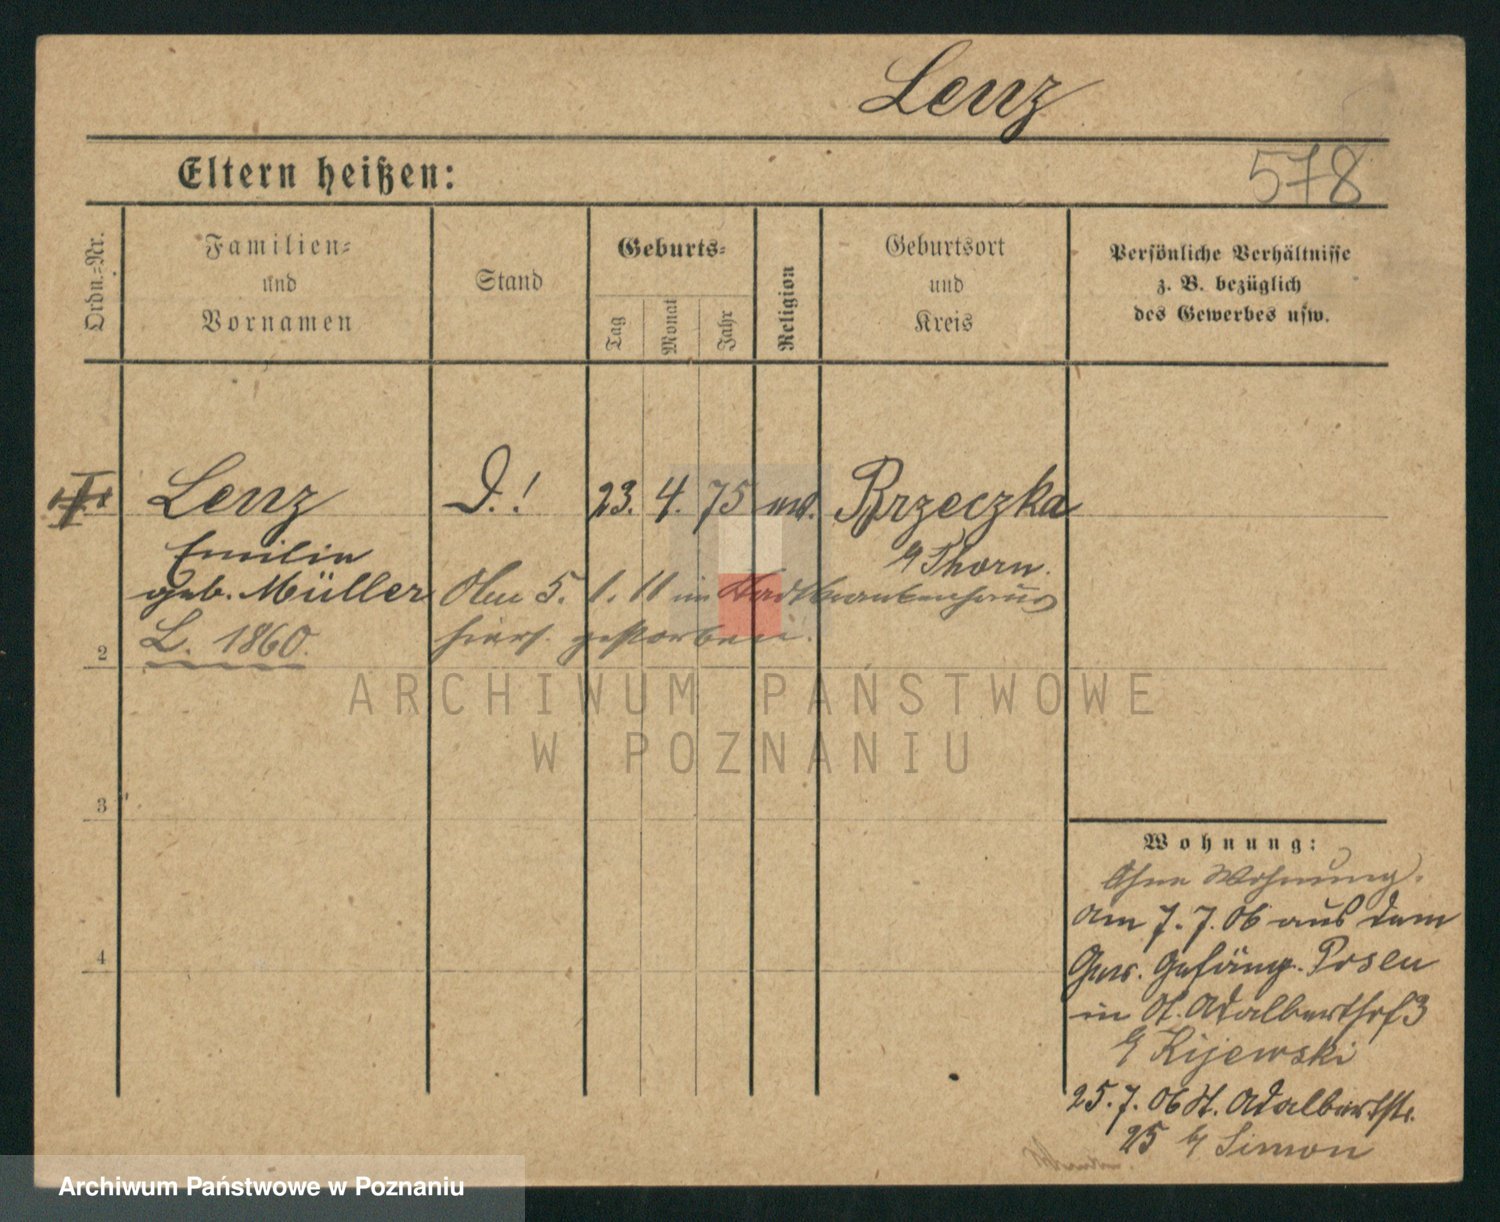 Lenz
Eltern heißen:
578
Ordn.-Nr.
Familien-
und
Vornamen
Stand
Geburts-
Tag
Monat
Jahr
Religion
Geburtsort
und
Kreis
Persönliche Verhältnisse
z. B. bezüglich
des Gewerbes usw.
Lenz
23. 4. 75
Brzeczka
Thorn.
Emilie
geb. Müller
5. 1. 11 im Stadtkrankenhaus
L. 1860.
hiers. gestorben.
2
ARCHIWUM PAŃSTWOWE
W POZNANIU
3
4
Wohnung:
Ohne Wohnung.
am 7. 7. 06 aus dem
Ger. Gefäng. Posen
in St. Adalberthof 3
Kijewski
25. 7. 06 St. Adalbertstr.
25 b/ Simon
Archiwum Państwowe w Poznaniu